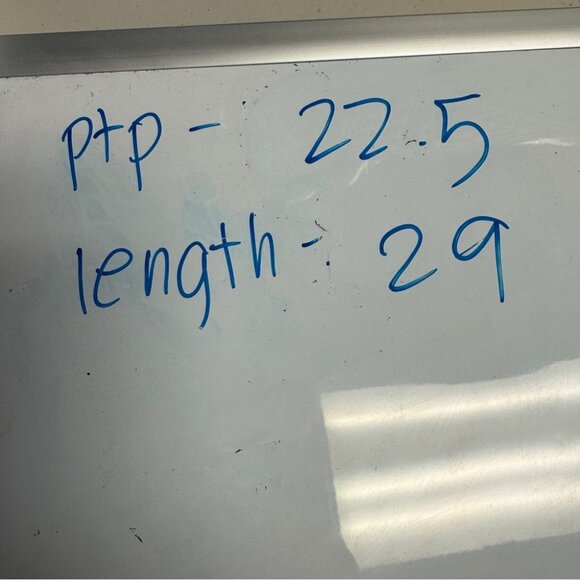 ptp - 22.5
length - 29